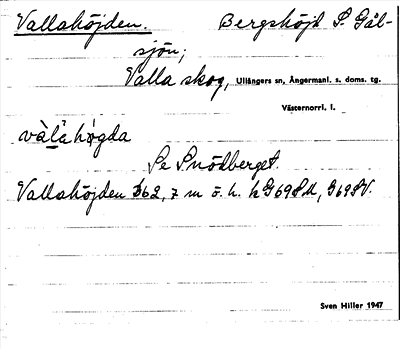 Vallahöjden. Bergshöjd S. Gål-
sjön;
Valla skog, Ullångers sn, Ångermanl. s. doms. tg.
Västernorrl. l.
vàlahø̀gda
Se Snödberget.
Vallahöjden 362,7 m ö. h. hG69SM, G69SV.
Sven Hiller 1947